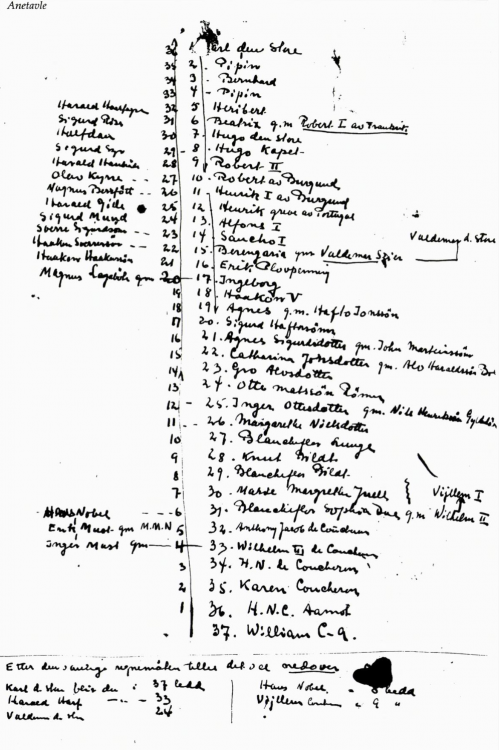 Anetavle
36 1 Karl den Store
35 2. Pipin
34 3 - Bernhard
33 4 - Pipin
Harald Haarfagre 32 5 Heribert
Sigurd 31 6 Beatrix g.m Robert I av Frankrik
Halfdan 30 7 Hugo den Store
Sigurd Syr 29 - 8. Hugo Kapet
Harald 28 9 Robert II
Olav Kyrre -- 27 10. Robert av Burgund
Magnus Barfött -- 26 11 Henrik I av Burgund
Harald Gille 25 12 Henrik greve av Portugal
Sigurd Mund 24 13. Alfons I
Sverre Sigurdsson -- 23 14 Sancho I Valdemar d. Store
Haakon Sverresson -- 22 15. Berengaria gm Valdemar Sejer
Haakon Haakonsön 21 16. Erik Plovpenning
Magnus Lagaböte gm 20 17. Ingeborg
19 18. Haakon V
18 19. Agnes g.m. Hafto Jonssön
17 20. Sigurd Haftorsönn
16 21. Agnes Sigurdsdotter gm. John Marteinssön
15 22. Catharina Johsdotter gm. Alv Haraldssön
14 23. Gro Alvsdotter
13 24. Otte Matssön Römer
12 - 25. Inger Ottesdotter gm. Nils Henrikssön Gyldenlöve
11 -- 26. Margarethe Nielsdotter
10 27. Blancheflor
9 28. Knut Bildt
8 29. Blancheflor Bildt
7 30. Margrethe Juell } Vijllem I
Hans Nobel 6 31. Blancheflor Sophia Due g.m Wilhelm II
Must gm M.M.N 5 32. Anthony Jacob de Coucheron
Inger Must gm 4 33. Wilhelm III de Coucheron
3 34. H.N. de Coucheron
2 35. Karen Coucheron
1 36. H.N.C. Aamot
37. William C-a.
Etter den regnemåten telles det vel nedover
Karl d. Store blir da i 37 ledd
Harald Harf --- 33
Valdem d. Sto 24
Hans Nobel, - 8 ledd
Vijllem - 9 "